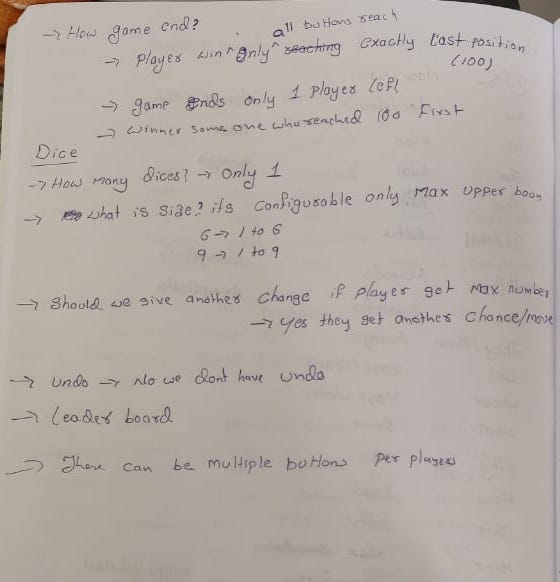 → How game end?
→ Player win only all buttons reach exactly last position (100)
→ game ends only 1 player left
→ winner some one who reached 100 First
Dice
→ How many dices? → Only 1
→ what is size? its configurable only Max upper boon
6 → 1 to 6
9 → 1 to 9
→ Should we give another change if player get Max number
→ yes they get another chance/move
→ undo → No we dont have undo
→ Leader board
→ There can be multiple buttons per players